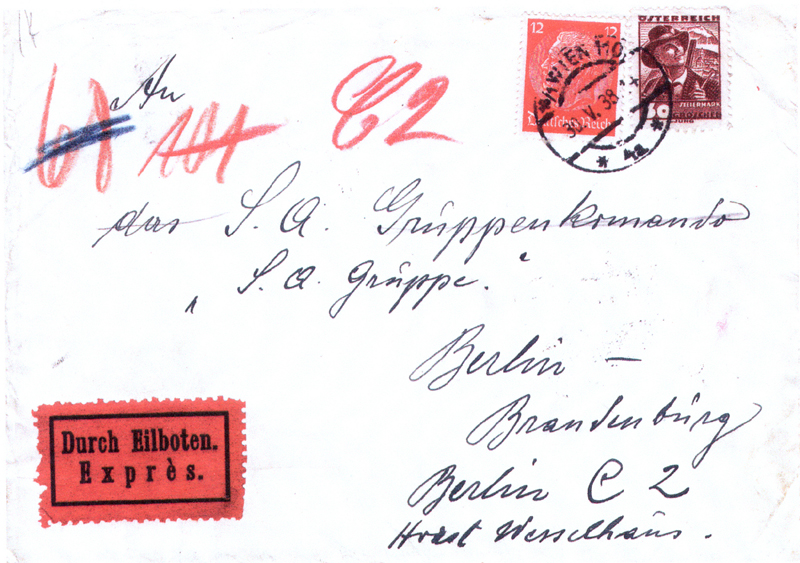 12 12
Deutsches Reich
ÖSTERREICH
STEIERMARK
GROSCHEN
WIEN
V. 38
* 4a *
An
C2
das S. A. Gruppenkomando
„S. A. Gruppe."
Berlin –
Brandenburg
Berlin C 2
Horst Wesselhaus.
Durch Eilboten.
Exprès.